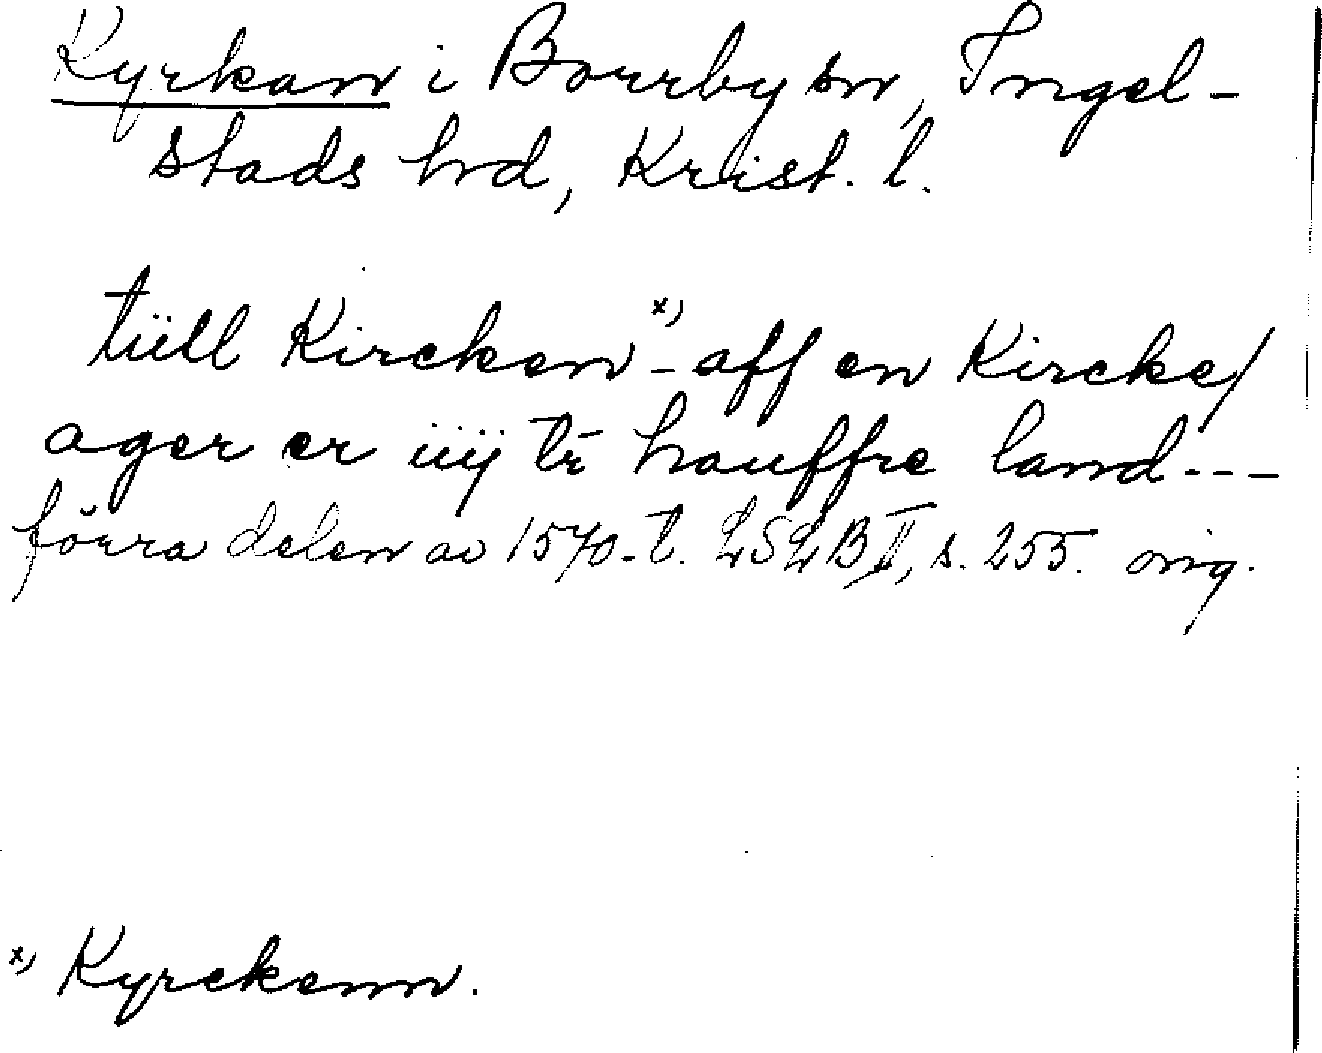 Kyrkan i Borrby sn, Ingel-
stads hrd, Krist. l.
tiill Kircken x) - aff en Kircke/
ager er iiij tr hauffre land---
förra delen av 1570-t. LSLB II, s. 255. orig.
x) Kyrckenn.